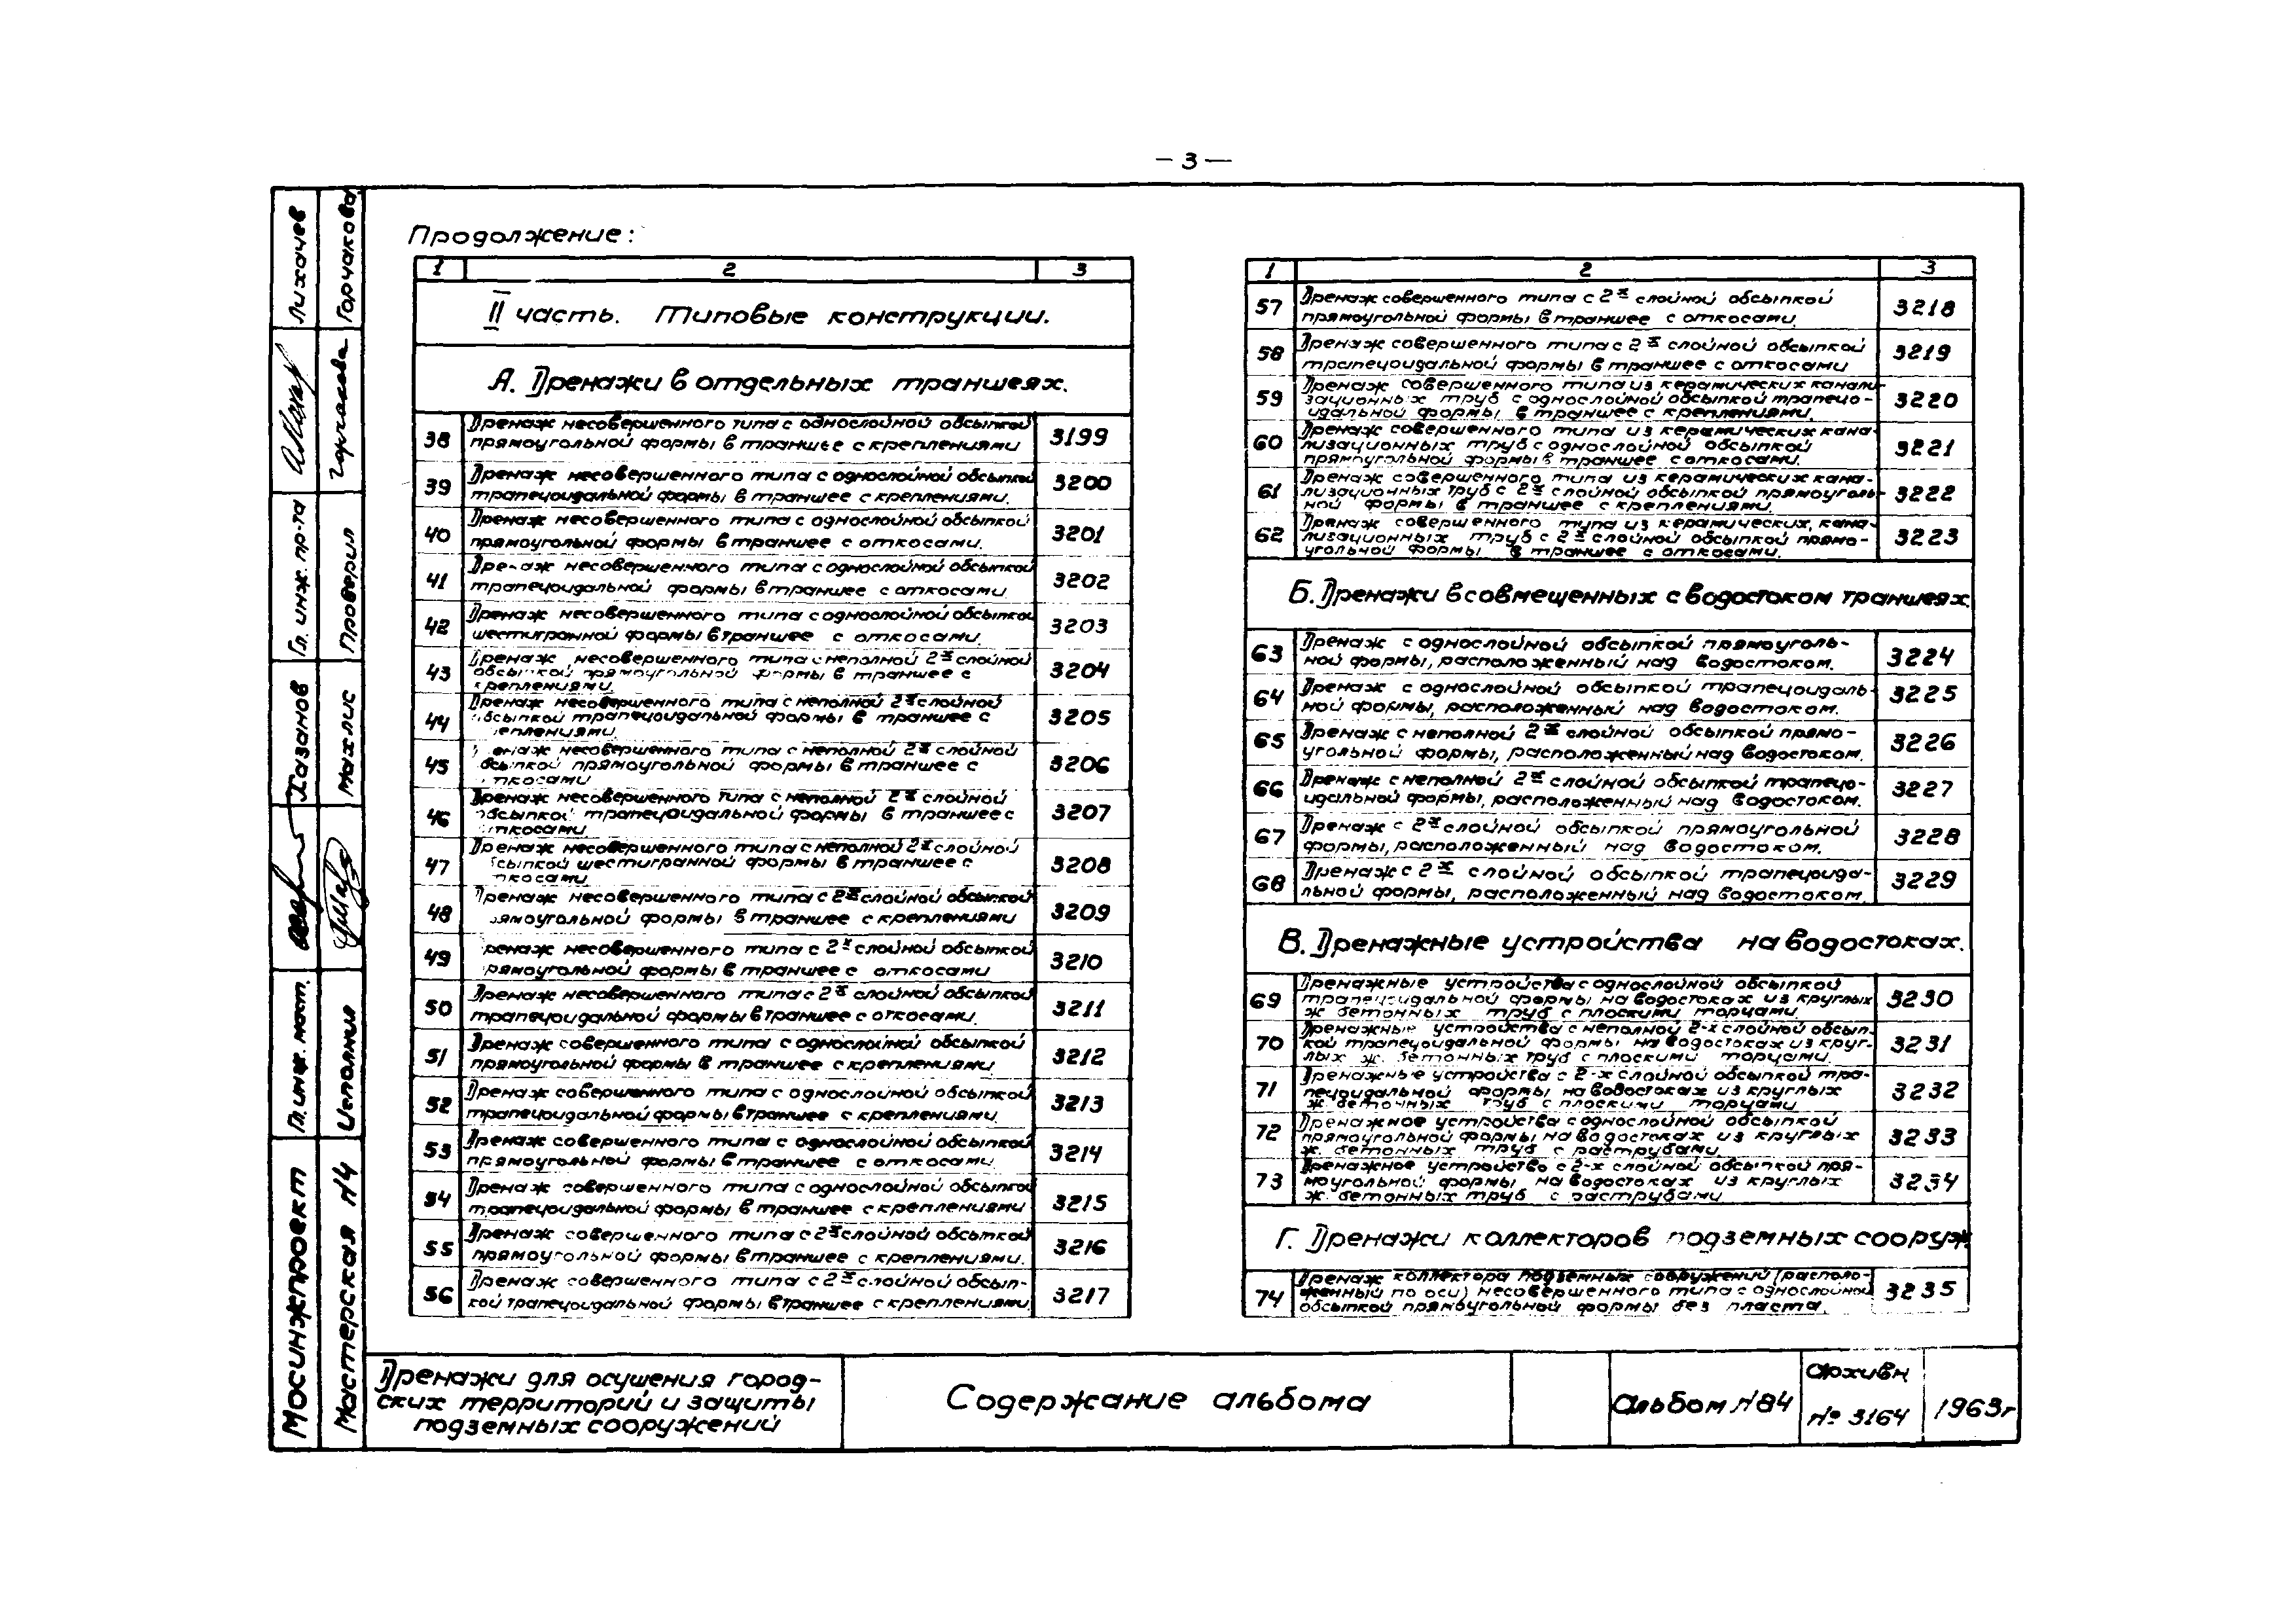 — 3 —
Продолжение:
1 2 3
II часть. Типовые конструкции.
А. Дренажи в отдельных траншеях.
38 Дренаж несовершенного типа с однослойной обсыпкой
прямоугольной формы в траншее с креплениями 3199
39 Дренаж несовершенного типа с однослойной обсыпкой
трапецоидальной формы в траншее с креплениями. 3200
40 Дренаж несовершенного типа с однослойной обсыпкой
прямоугольной формы в траншее с откосами. 3201
41 Дренаж несовершенного типа с однослойной обсыпкой
трапецоидальной формы в траншее с откосами. 3202
42 Дренаж несовершенного типа с однослойной обсыпкой
шестигранной формы в траншее с откосами. 3203
43 Дренаж несовершенного типа с неполной 2х слойной
обсыпкой прямоугольной формы в траншее с
креплениями. 3204
44 Дренаж несовершенного типа с неполной 2х слойной
обсыпкой трапецоидальной формы в траншее с
еплениями. 3205
45 енаж несовершенного типа с неполной 2х слойной
обсыпкой прямоугольной формы в траншее с
ткосами 3206
46 Дренаж несовершенного типа с неполной 2х слойной
обсыпкой трапецоидальной формы в траншее с
ткосами 3207
47 Дренаж несовершенного типа с неполной 2х слойной
сыпкой шестигранной формы в траншее с
ткосами 3208
48 Дренаж несовершенного типа с 2х слойной обсыпкой
рямоугольной формы в траншее с креплениями 3209
49 ренаж несовершенного типа с 2х слойной обсыпкой
рямоугольной формы в траншее с откосами 3210
50 Дренаж несовершенного типа с 2х слойной обсыпкой
трапецоидальной формы в траншее с откосами. 3211
51 Дренаж совершенного типа с однослойной обсыпкой
прямоугольной формы в траншее с креплениями 3212
52 Дренаж совершенного типа с однослойной обсыпкой
трапецоидальной формы в траншее с креплениями. 3213
53 Дренаж совершенного типа с однослойной обсыпкой
прямоугольной формы в траншее с откосами. 3214
54 Дренаж совершенного типа с однослойной обсыпкой
трапецоидальной формы в траншее с креплениями 3215
55 Дренаж совершенного типа с 2х слойной обсыпкой
прямоугольной формы в траншее с креплениями. 3216
56 Дренаж совершенного типа с 2х слойной обсып-
кой трапецоидальной формы в траншее с креплениями. 3217
1 2 3
57 Дренаж совершенного типа с 2х слойной обсыпкой
прямоугольной формы в траншее с откосами. 3218
58 Дренаж совершенного типа с 2х слойной обсыпкой
трапецоидальной формы в траншее с откосами 3219
59 Дренаж совершенного типа из керамических канали-
зационных труб с однослойной обсыпкой трапецо-
идальной формы в траншее с креплениями. 3220
60 Дренаж совершенного типа из керамических кана-
лизационных труб с однослойной обсыпкой
прямоугольной формы в траншее с откосами. 3221
61 Дренаж совершенного типа из керамических кана-
лизационных труб с 2х слойной обсыпкой прямоуголь-
ной формы в траншее с креплениями. 3222
62 Дренаж совершенного типа из керамических, кана-
лизационных труб с 2х слойной обсыпкой прямо-
угольной формы в траншее с откосами. 3223
Б. Дренажи в совмещенных с водостоком траншеях.
63 Дренаж с однослойной обсыпкой прямоуголь-
ной формы, расположенный над водостоком. 3224
64 Дренаж с однослойной обсыпкой трапецоидаль-
ной формы, расположенный над водостоком. 3225
65 Дренаж с неполной 2х слойной обсыпкой прямо-
угольной формы, расположенный над водостоком. 3226
66 Дренаж с неполной 2х слойной обсыпкой трапецо-
идальной формы, расположенный над водостоком. 3227
67 Дренаж с 2х слойной обсыпкой прямоугольной
формы, расположенный над водостоком. 3228
68 Дренаж с 2х слойной обсыпкой трапецоида-
льной формы, расположенный над водостоком. 3229
В. Дренажные устройства на водостоках.
69 Дренажные устройства с однослойной обсыпкой
трапецоидальной формы на водостоках из круглых
ж. бетонных труб с плоскими торцами. 3230
70 Дренажные устройства с неполной 2-х слойной обсып-
кой трапецоидальной формы на водостоках из круг-
лых ж. бетонных труб с плоскими торцами. 3231
71 Дренажные устройства с 2-х слойной обсыпкой тра-
пецоидальной формы на водостоках из круглых
ж. бетонных труб с плоскими торцами 3232
72 Дренажное устройства с однослойной обсыпкой
прямоугольной формы на водостоках из круглых
ж. бетонных труб с раструбами. 3233
73 Дренажное устройство с 2-х слойной обсыпкой пря-
моугольной формы на водостоках из круглых
ж. бетонных труб с раструбами 3234
Г. Дренажи коллекторов подземных сооруж.
74 Дренаж коллектора подземных сооружений (располо-
женный по оси) несовершенного типа с однослойной
обсыпкой прямоугольной формы без пласта. 3235
Лихачев
Гл. инж. пр-та
Хазанов
Гл. инж. маст.
Мосинжпроект
Горчакова
Горчакова
Проверил
Махлис
Исполнил
Мастерская №4
Дренажи для осушения город-
ских территорий и защиты
подземных сооружений
Содержание альбома
Альбом №84
Архивн
№ 3164
1963г